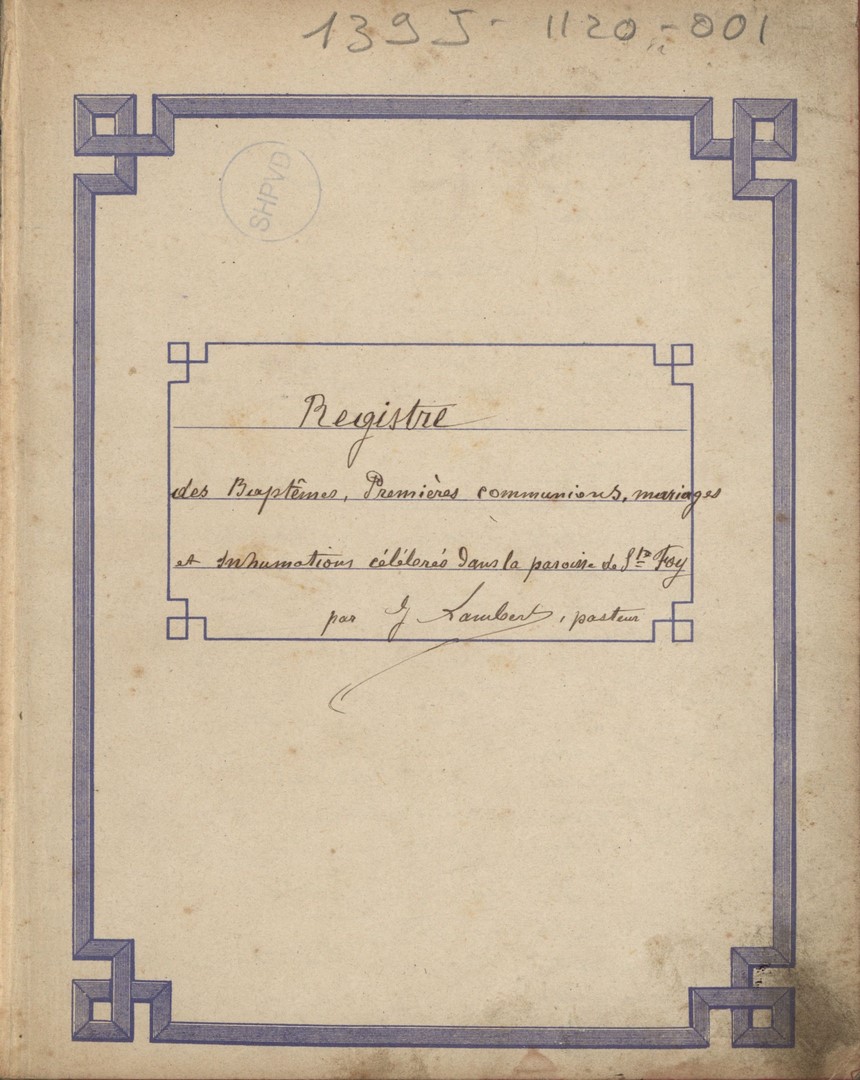 1395-1120-001
SHPVD
Registre
des Baptêmes, Premières communions, mariages
et Inhumations célébrés dans la paroisse de Ste Foy
par J Lambert, pasteur